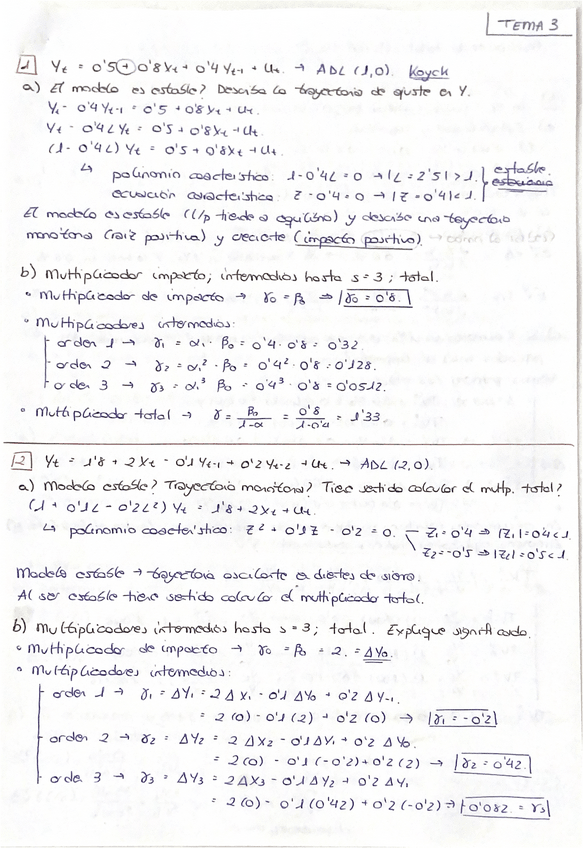 TEMA 3
1 Yt = 0'5 + 0'8Xt + 0'4 Yt-1 + Ut. → ADL (1,0). Koyck
a) El modelo es estable? Describa la trayectoria de ajuste en Y.
Yt - 0'4Yt-1 = 0'5 + 0'8Xt + Ut.
Yt - 0'4LYt = 0'5 + 0'8Xt + Ut.
(1 - 0'4L) Yt = 0'5 + 0'8Xt + Ut.
↳ polinomio característico: 1 - 0'4L = 0 → |L = 2'5| > 1. estable.
ecuación característica: Z - 0'4 = 0 → |Z = 0'4| < 1.
El modelo es estable (l/p tiende a equilibrio) y describe una trayectoria
monótona (raíz positiva) y creciente (impacto positivo).
b) Multiplicador impacto; intermedios hasta s = 3; total.
• Multiplicador de impacto → γ0 = β0 ⇒ γ0 = 0'8.
• Multiplicadores intermedios:
orden 1 → γ1 = α1 · β0 = 0'4 · 0'8 = 0'32.
orden 2 → γ2 = α1² · β0 = 0'4² · 0'8 = 0'128.
orden 3 → γ3 = α1³ β0 = 0'4³ · 0'8 = 0'0512.
• Multiplicador total → γ = β0/1-α = 0'8/1-0'4 = 1'33
2 Yt = 1'8 + 2Xt - 0'1Yt-1 + 0'2Yt-2 + Ut. → ADL (2,0).
a) Modelo estable? Trayectoria monótona? Tiene sentido calcular el multp. total?
(1 + 0'1L - 0'2L²) Yt = 1'8 + 2Xt + Ut.
↳ polinomio característico: Z² + 0'1Z - 0'2 = 0. Z1 = 0'4 ⇒ |Z1| = 0'4 < 1.
Z2 = -0'5 ⇒ |Z2| = 0'5 < 1.
Modelo estable → trayectoria oscilante en dientes de sierra.
Al ser estable tiene sentido calcular el multiplicador total.
b) Multiplicadores intermedios hasta s = 3; total. Explique significado.
• Multiplicador de impacto → γ0 = β0 = 2. = ΔY0.
• Multiplicadores intermedios:
orden 1 → γ1 = ΔY1 = 2ΔX1 - 0'1 ΔY0 + 0'2 ΔY-1.
= 2(0) - 0'1(2) + 0'2(0) → γ1 = -0'2
orden 2 → γ2 = ΔY2 = 2ΔX2 - 0'1ΔY1 + 0'2 ΔY0.
= 2(0) - 0'1(-0'2) + 0'2(2) → γ2 = 0'42.
orden 3 → γ3 = ΔY3 = 2ΔX3 - 0'1ΔY2 + 0'2 ΔY1
= 2(0) - 0'1(0'42) + 0'2(-0'2) → -0'082. = γ3